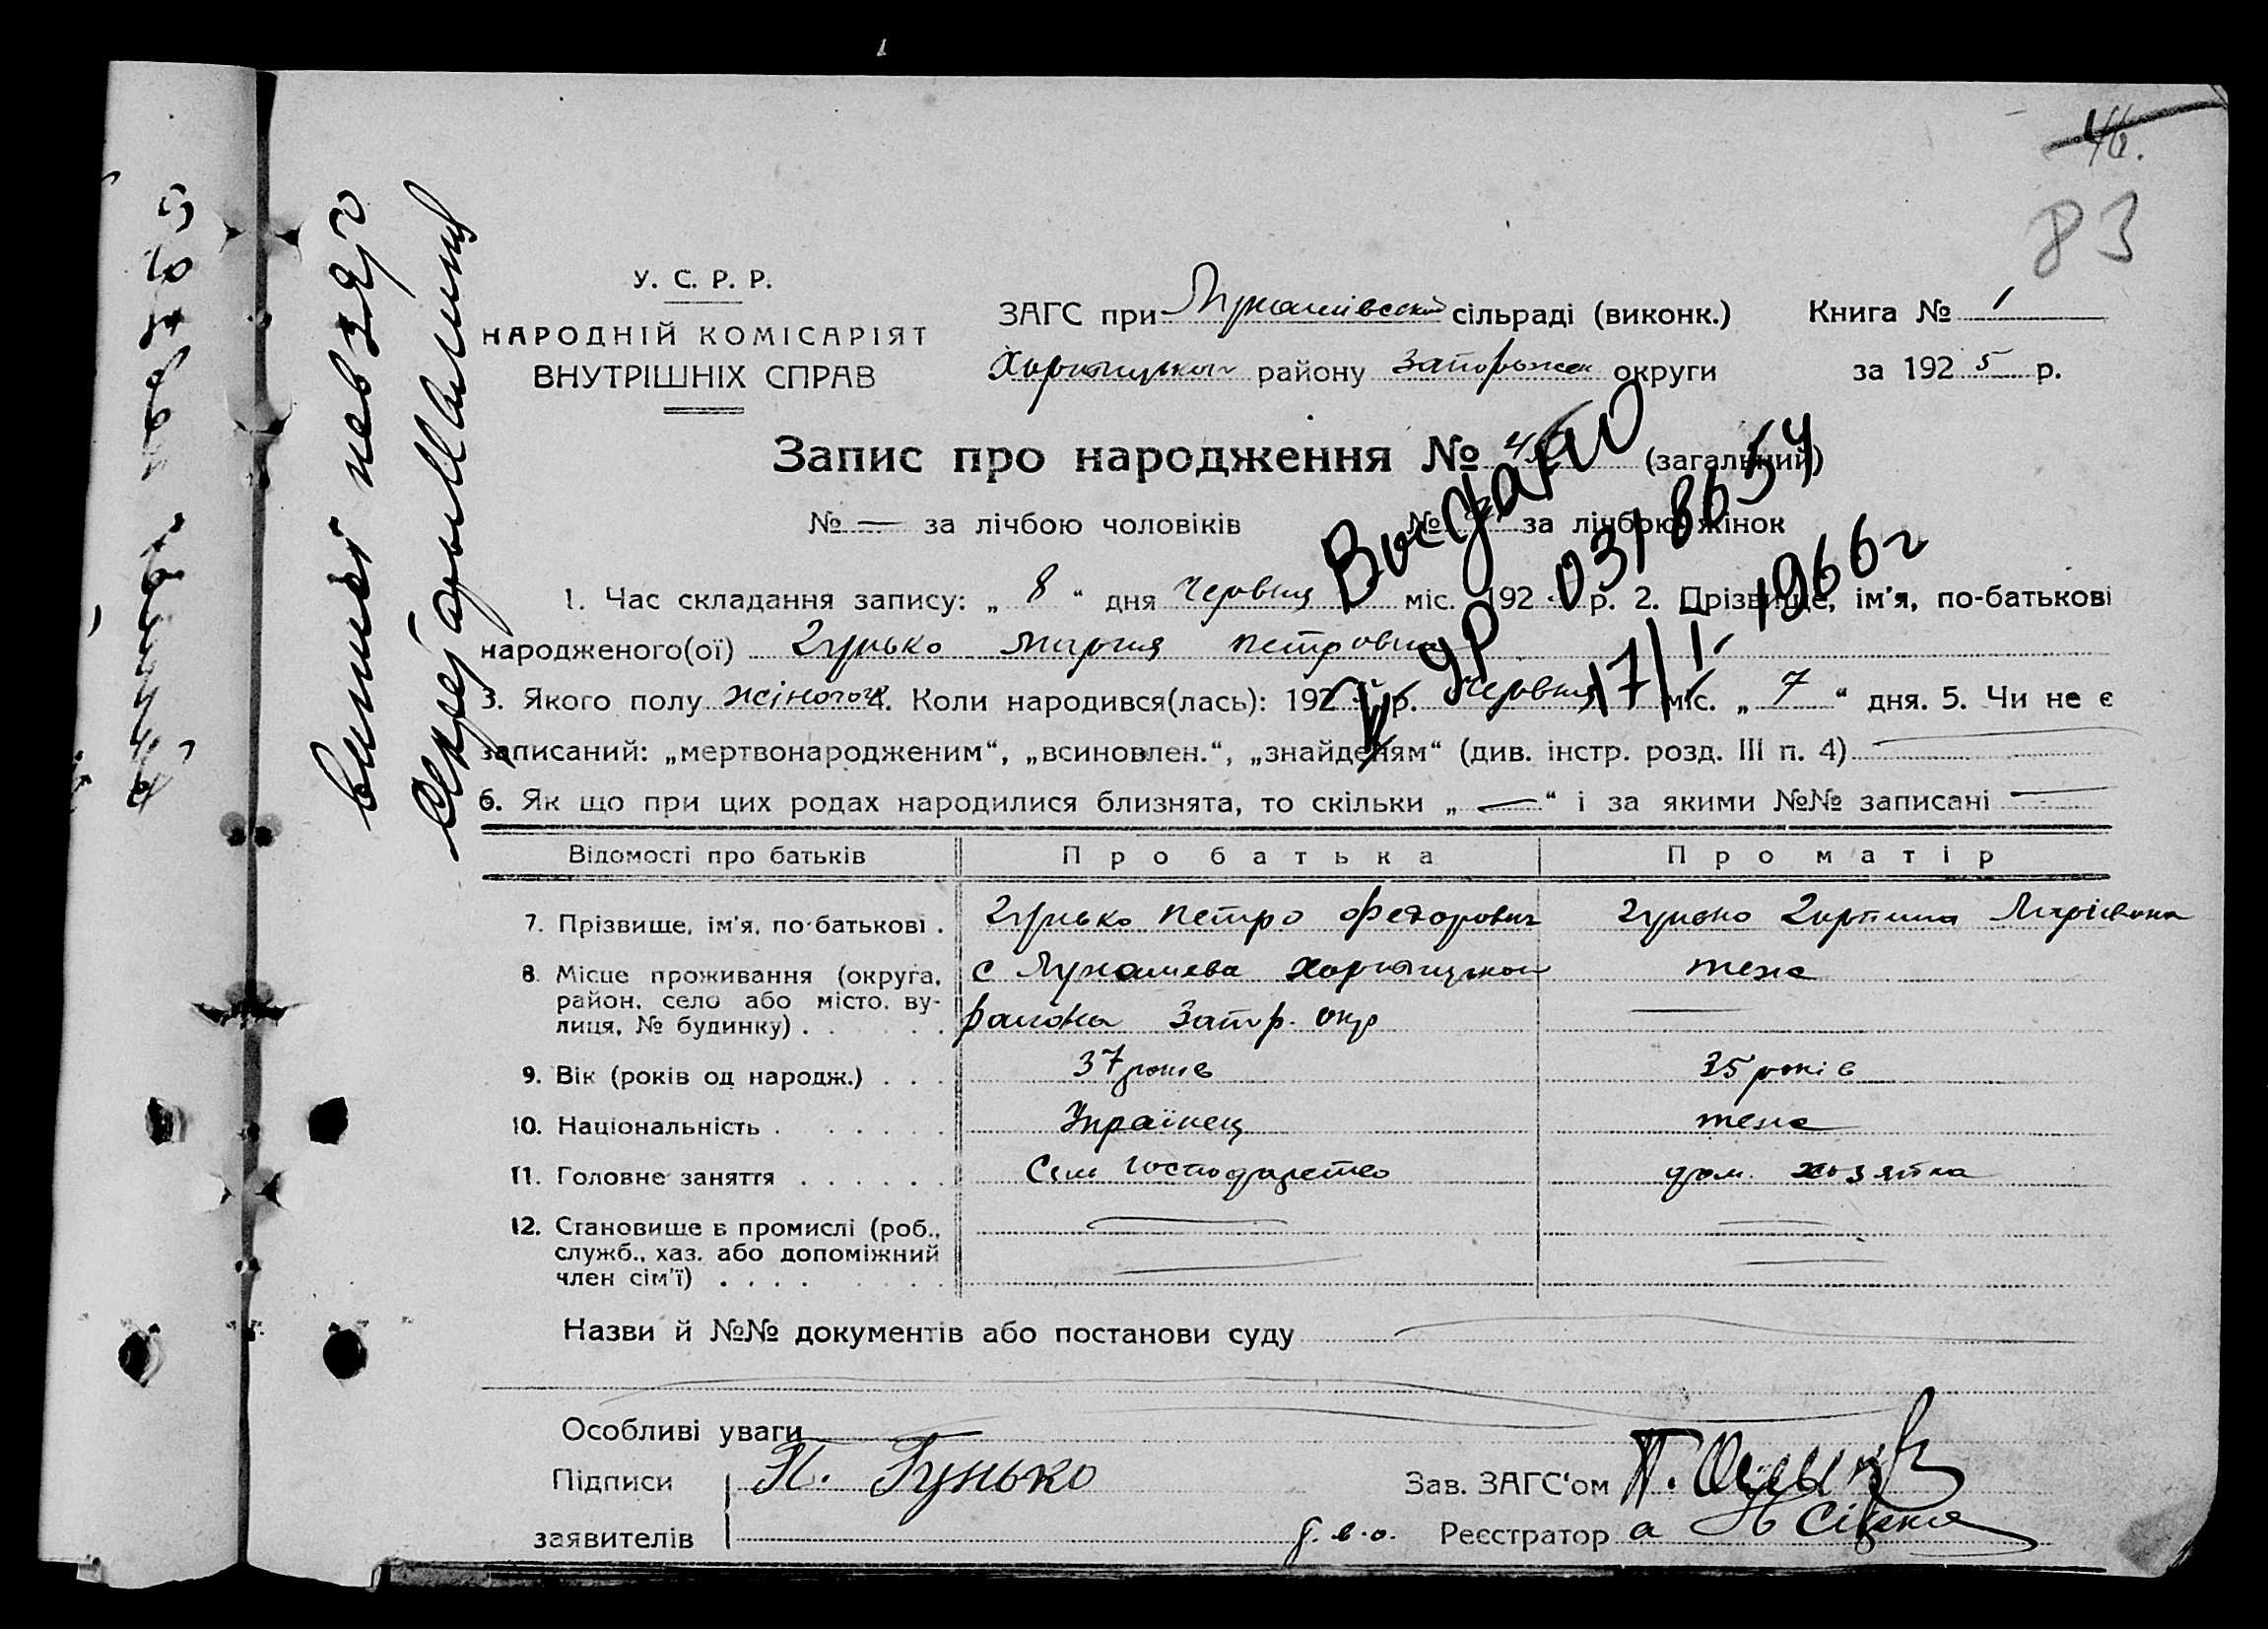 46.
83
У. С. Р. Р.
НАРОДНІЙ КОМІСАРІЯТ
ВНУТРІШНІХ СПРАВ
ЗАГС при Лукашівській сільраді (виконк.) Книга № 1
Хортицького району Запорожск округи за 1925 р.
Запис про народження № (загальний)
№ — за лічбою чоловіків № за лічбою жінок
Выдано
031865
17/I 1966 г
1. Час складання запису: „8“ дня Червня міс. 192 р. 2. Прізвище, ім’я, по-батькові
народженого(ої) Гунько Мария Петровна
3. Якого полу жіночого 4. Коли народився(лась): 192 р. Червня міс. „7“ дня. 5. Чи не є
записаний: „мертвонародженим“, „всиновлен.“, „знайденям“ (див. інстр. розд. III п. 4)
6. Як що при цих родах народилися близнята, то скільки „—“ і за якими №№ записані —
Відомості про батьків Про батька Про матір
7. Прізвище, ім’я, по-батькові . Гунько Петро Федорович Гунько Горпина
8. Місце проживання (округа, с Лукашева Хортицького теж
район, село або місто, ву- района Запор. окр —
лиця, № будинку) . . .
9. Вік (років од народж.) . . . 37 років 35 років
10. Національність . . . . . . Українец теж
11. Головне заняття . . . . . . Сель господарство дом. хозяйка
12. Становище в промислі (роб.,
служб., хаз. або допоміжний
член сім’ї) . . . .
Назви й №№ документів або постанови суду
Особливі уваги
Підписи П. Гунько Зав. ЗАГС‘ом
заявителів Реєстратор
выпись
Секретарь